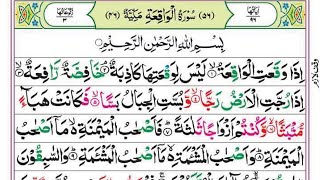 اٰیَاتُهَا ٩٦ (٥٦) سُوْرَةُ الْوَاقِعَةِ مَكِّيَّةٌ (٤٦) رُكُوْعَاتُهَا ٣
بِسْمِ اللّٰهِ الرَّحْمٰنِ الرَّحِيْمِ
اِذَا وَقَعَتِ الْوَاقِعَةُ ۙ لَيْسَ لِوَقْعَتِهَا كَاذِبَةٌ ۘ خَافِضَةٌ رَّافِعَةٌ ۙ
وقف لازم
اِذَا رُجَّتِ الْاَرْضُ رَجًّا ۙ وَّبُسَّتِ الْجِبَالُ بَسًّا ۙ فَكَانَتْ هَبَآءً
مُّنْۢبَثًّا ۙ وَّكُنْتُمْ اَزْوَاجًا ثَلٰثَةً ؕ فَاَصْحٰبُ الْمَيْمَنَةِ ۙ مَاۤ اَصْحٰبُ
الْمَيْمَنَةِ ؕ وَاَصْحٰبُ الْمَشْـَٔمَةِ ۙ مَاۤ اَصْحٰبُ الْمَشْـَٔمَةِ ؕ وَالسّٰبِقُوْنَ